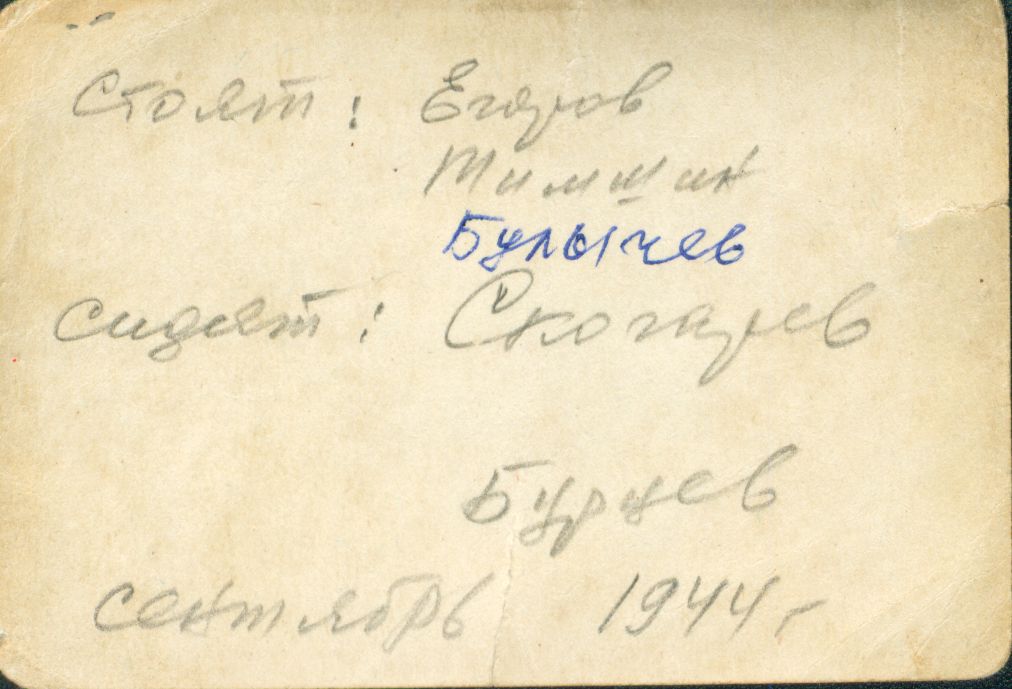 Стоят: Егоров
Тимшин
Булычев
сидят: Скогарев
Бурцев
сентябрь 1944 г.